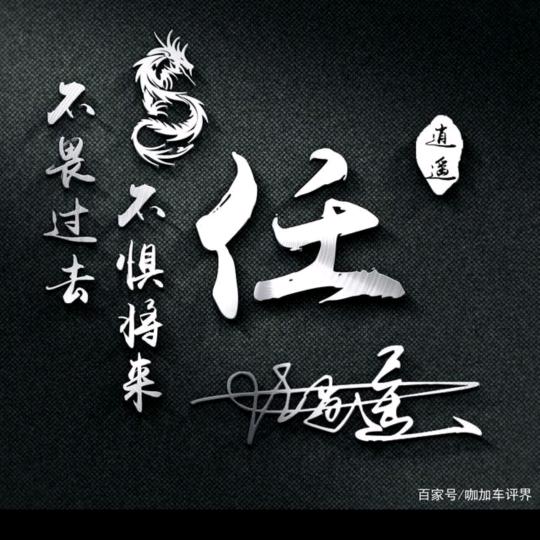 不畏过去
不惧将来
任
逍遥
百家号/咖加车评界